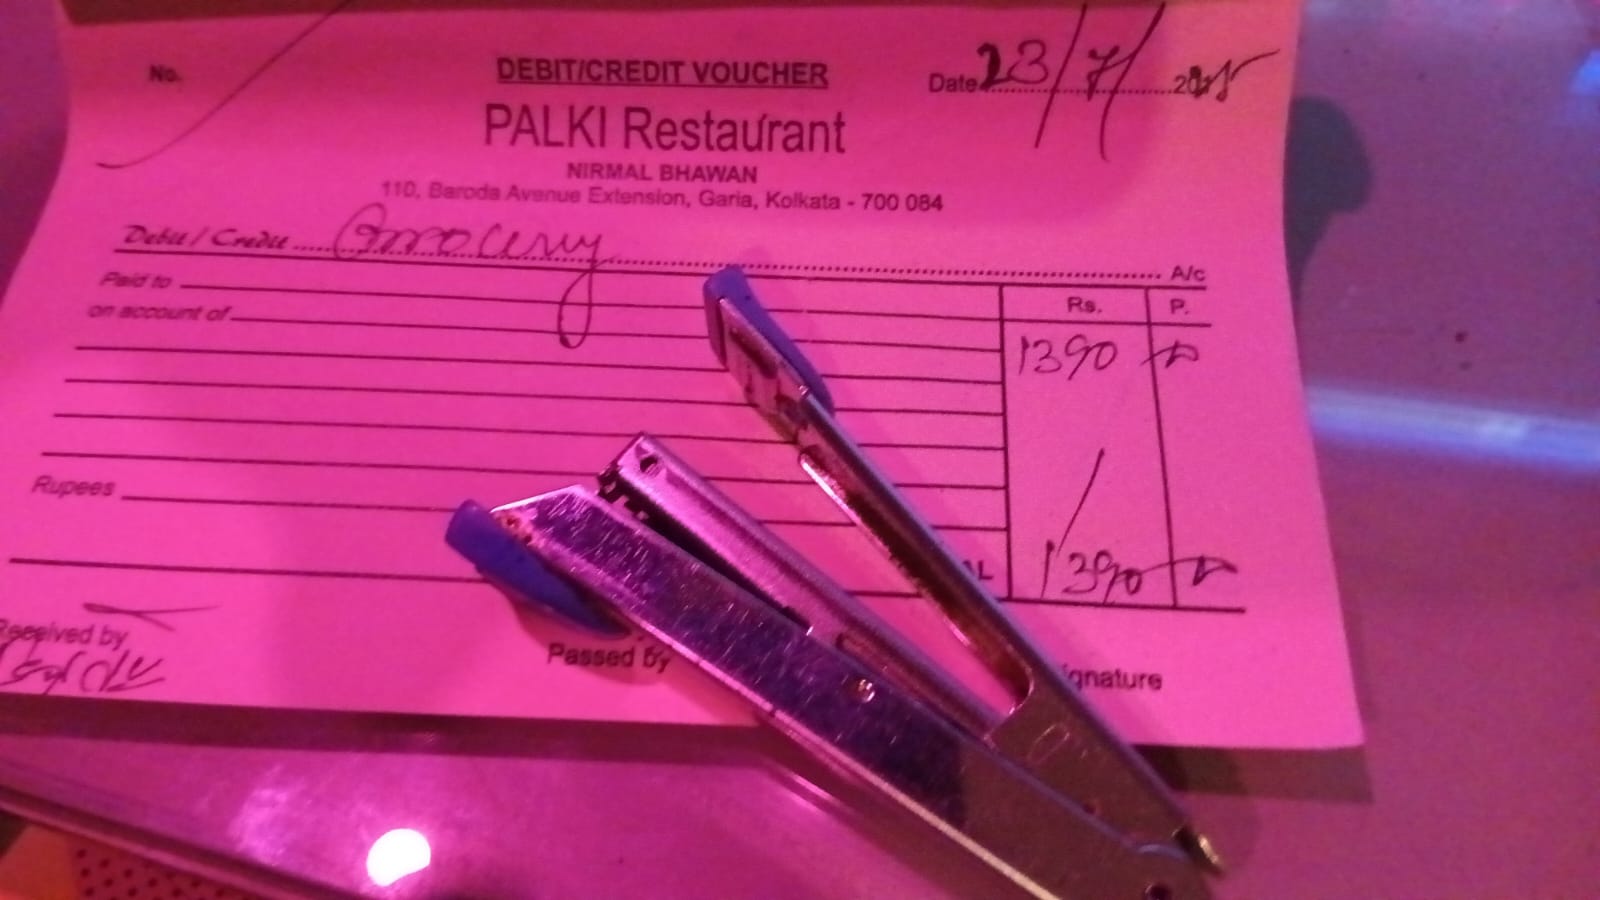 No.
DEBIT/CREDIT VOUCHER
Date 23/7/2025
PALKI Restaurant
NIRMAL BHAWAN
110, Baroda Avenue Extension, Garia, Kolkata - 700 084
Debit / Credit Grocery A/c
Paid to
Rs. P.
on account of
1390
Rupees
1390
Received by
Passed by